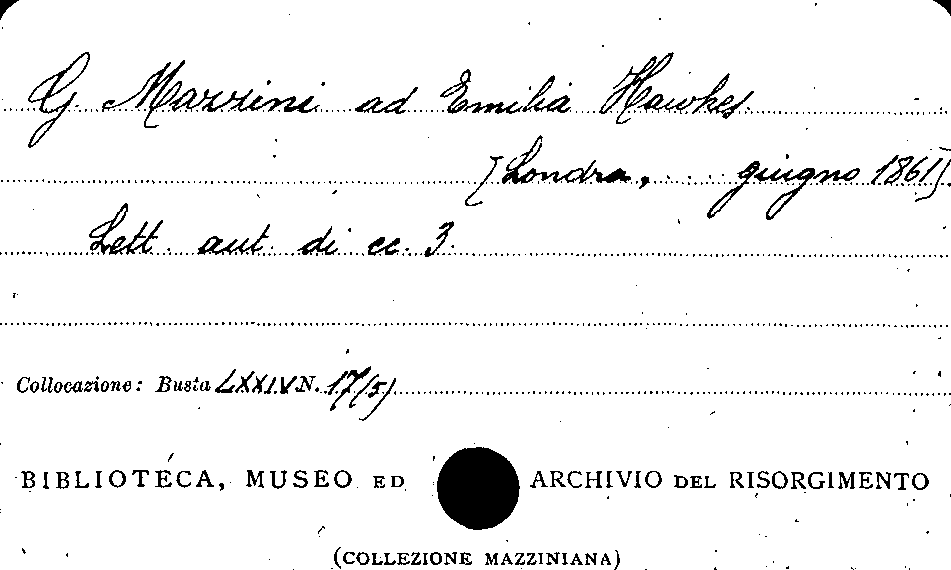 G. Mazzini ad Emilia Hawkes.
[Londra, ... giugno 1861].
Lett. aut. di cc. 3.
Collocazione: Busta LXXIV N. 17/5)
BIBLIOTECA, MUSEO ED ARCHIVIO DEL RISORGIMENTO
(COLLEZIONE MAZZINIANA)